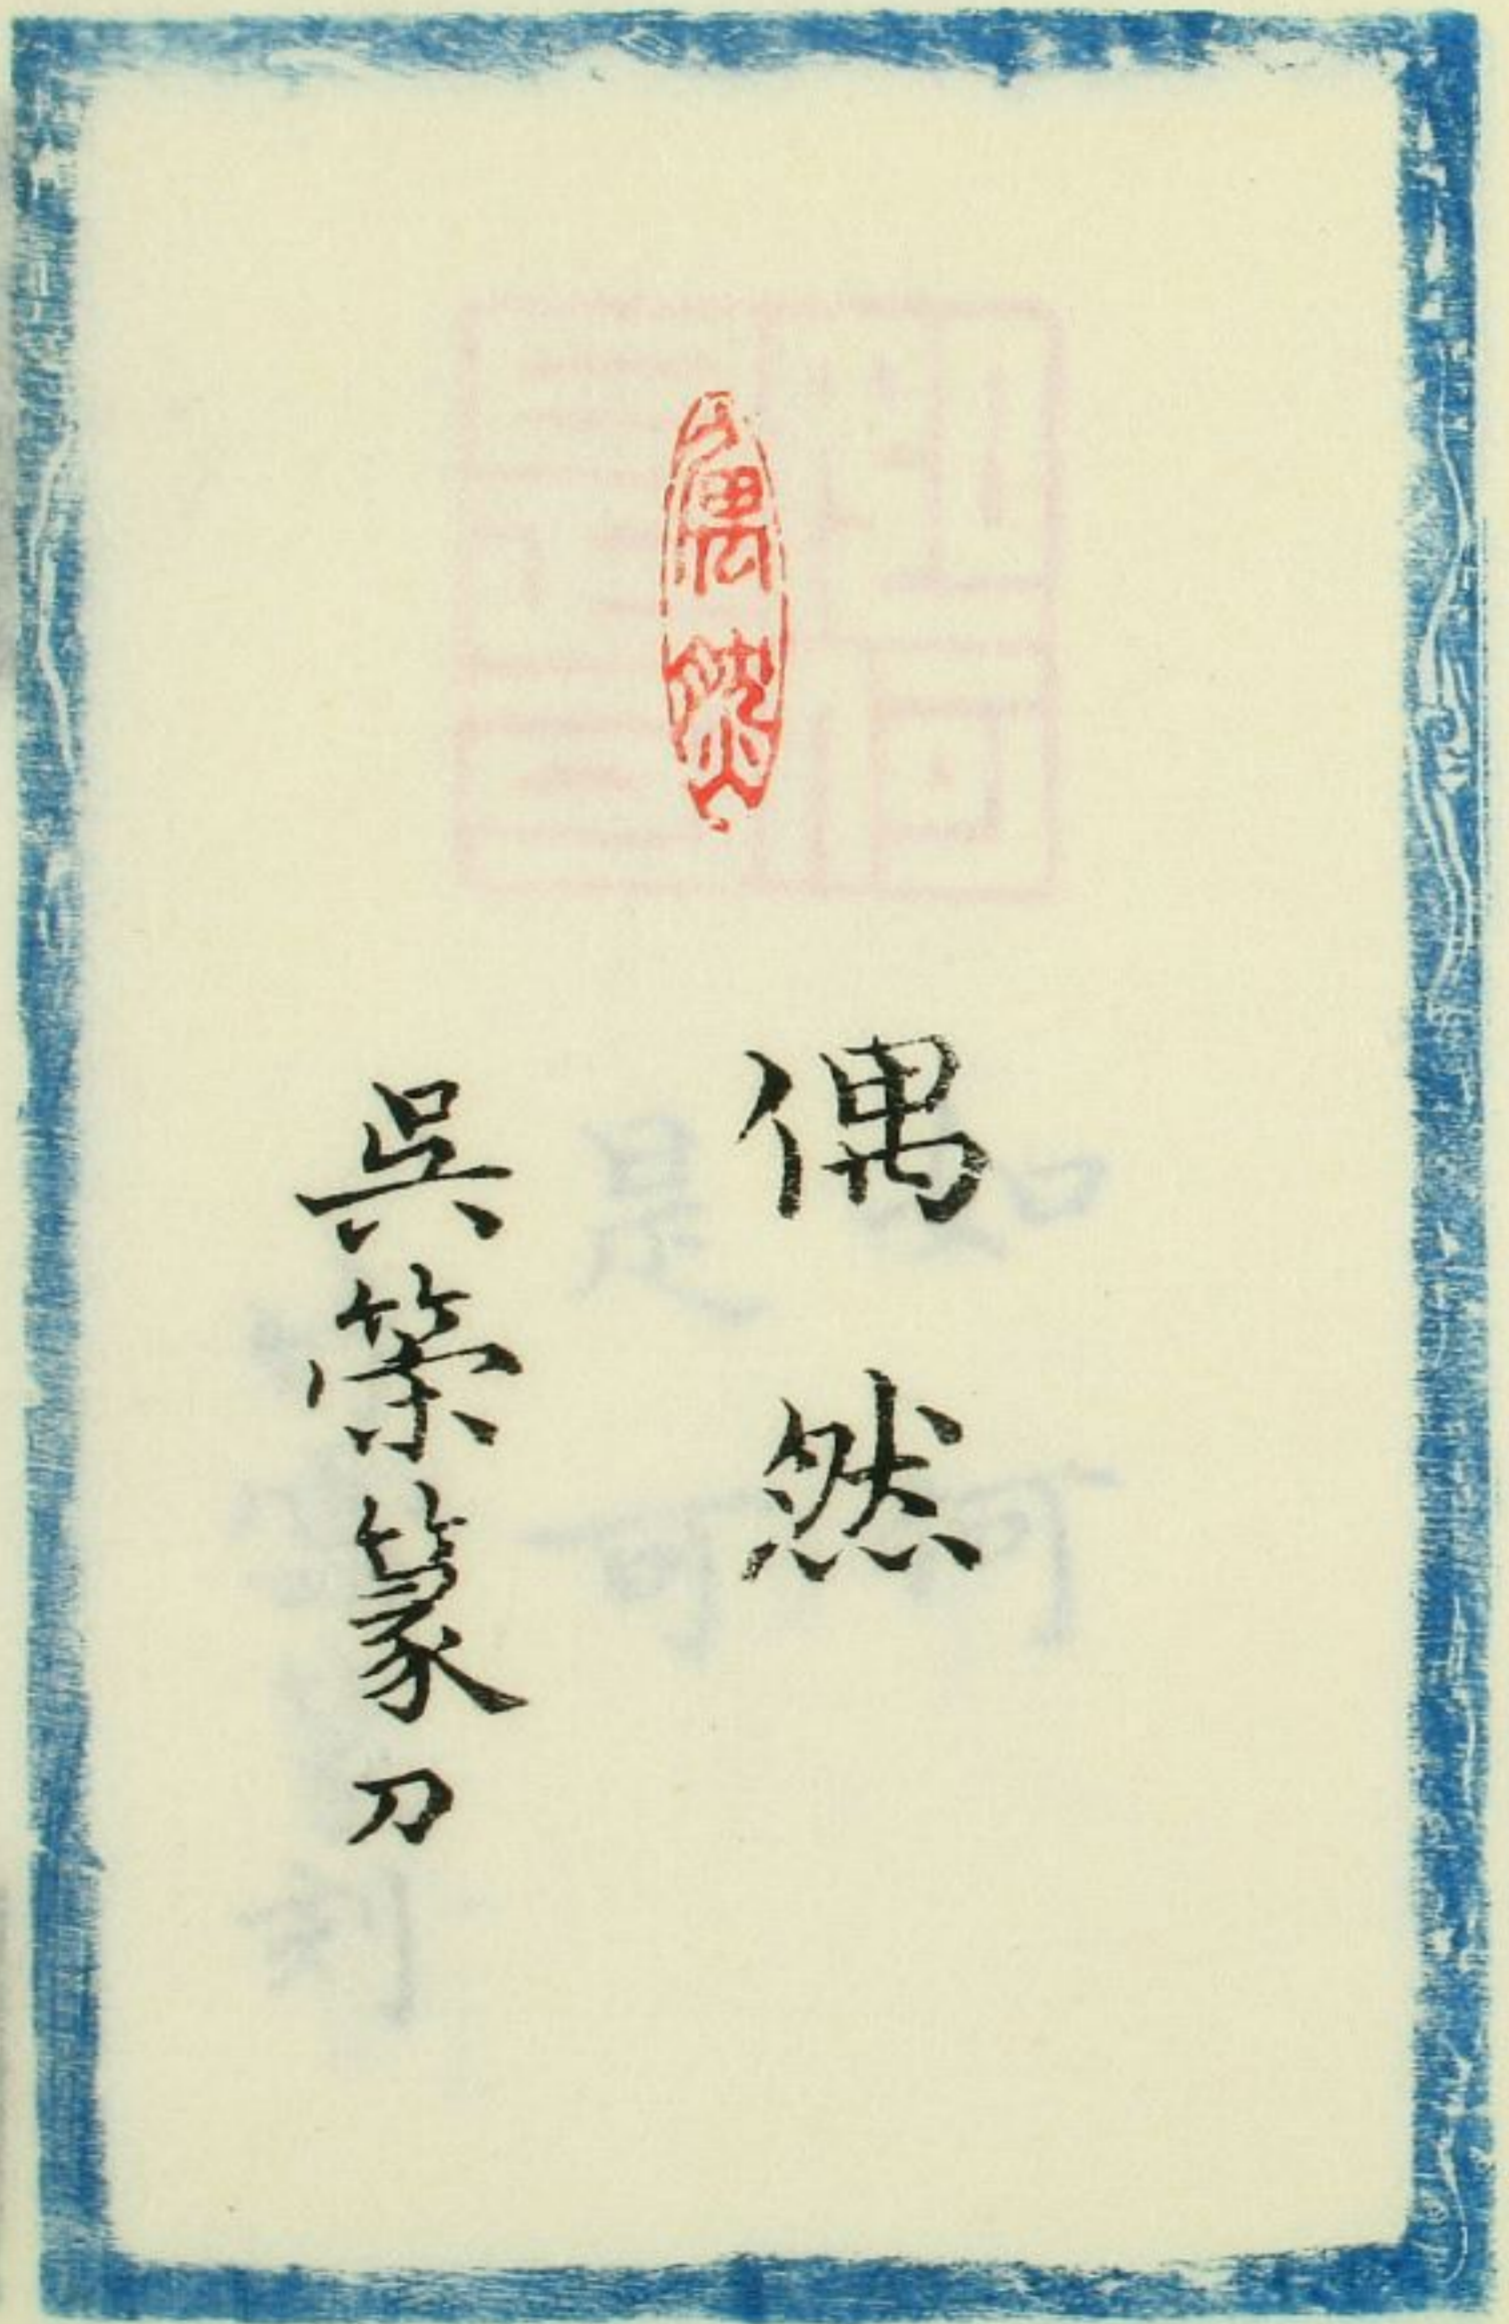 偶然
偶然
吳䇿篆刀